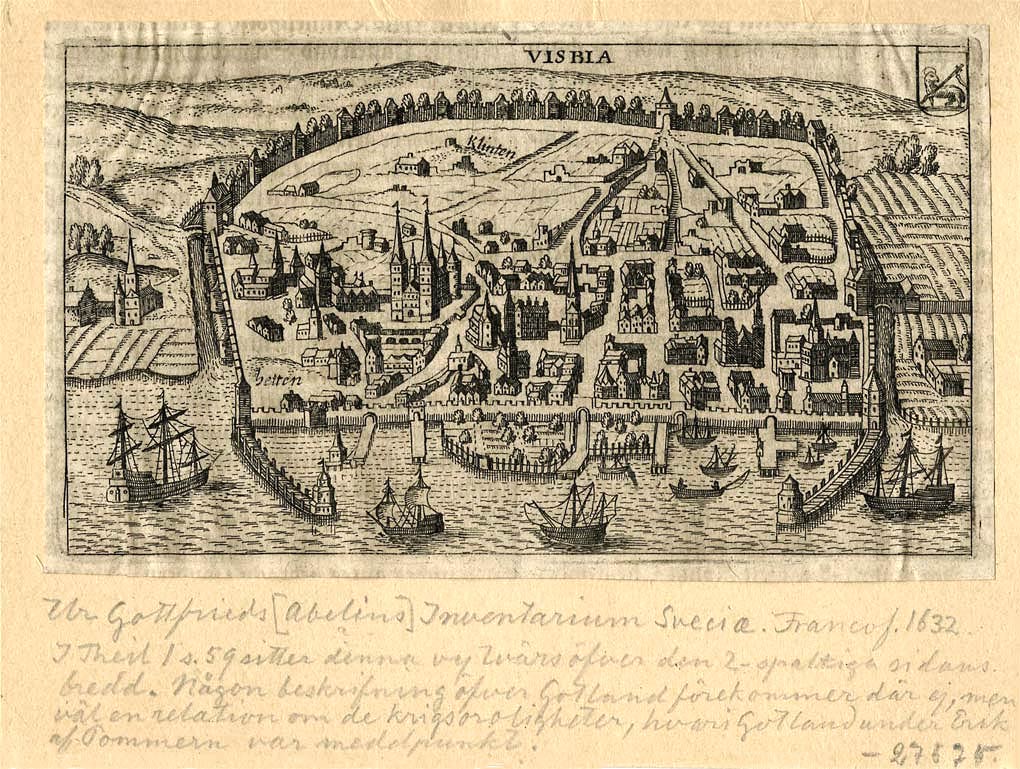 VISBIA
Klinten
Ur Gottfrieds [Abelins] Inventarium Sveciæ. Francof. 1632.
I Theil 1 s. 59 sitter denna vy tvärs öfver den 2-spaltiga sidans
bredd. Någon beskrifning öfver Gotland förekommer där ej, men
väl en relation om de krigsoroligheter, hvari Gotland under Erik
af Pommern var medelpunkt.
- 27575.